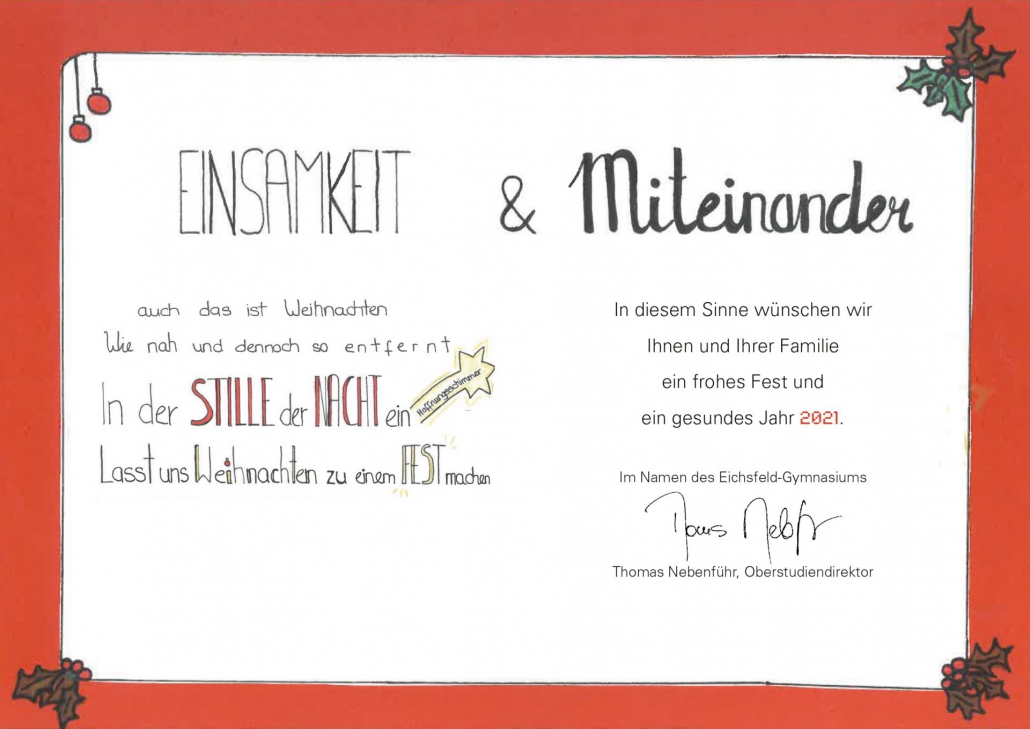 EINSAMKEIT & Miteinander
auch das ist Weihnachten
Wie nah und dennoch so entfernt
In der STILLE der NACHT ein Hoffnungsschimmer
Lasst uns Weihnachten zu einem FEST machen
In diesem Sinne wünschen wir
Ihnen und Ihrer Familie
ein frohes Fest und
ein gesundes Jahr 2021.
Im Namen des Eichsfeld-Gymnasiums
Thomas Nebenführ, Oberstudiendirektor